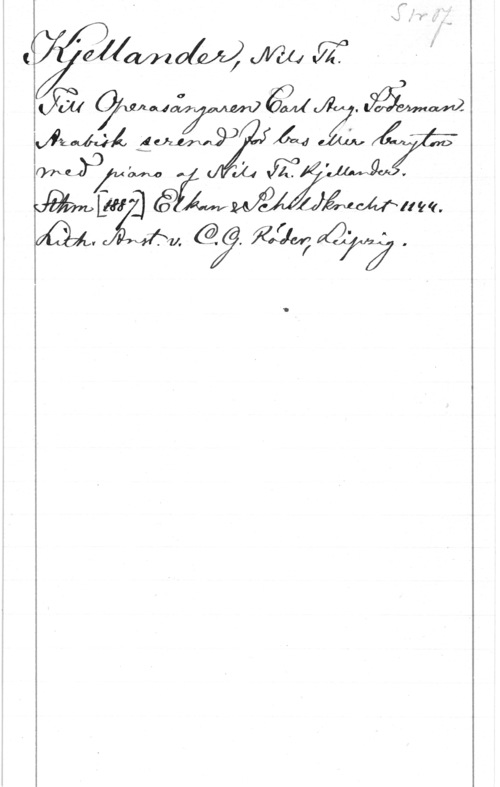 Kjellander, Nils Th.
Till Operasångaren Carl Aug. Söderman.
Arabisk serenad för bas eller baryton
med piano af Nils Th. Kjellander.
Sthm [1887] Elkan & Schildknecht 1144.
Lith. Anst. v. C. G. Röder, Leipzig.